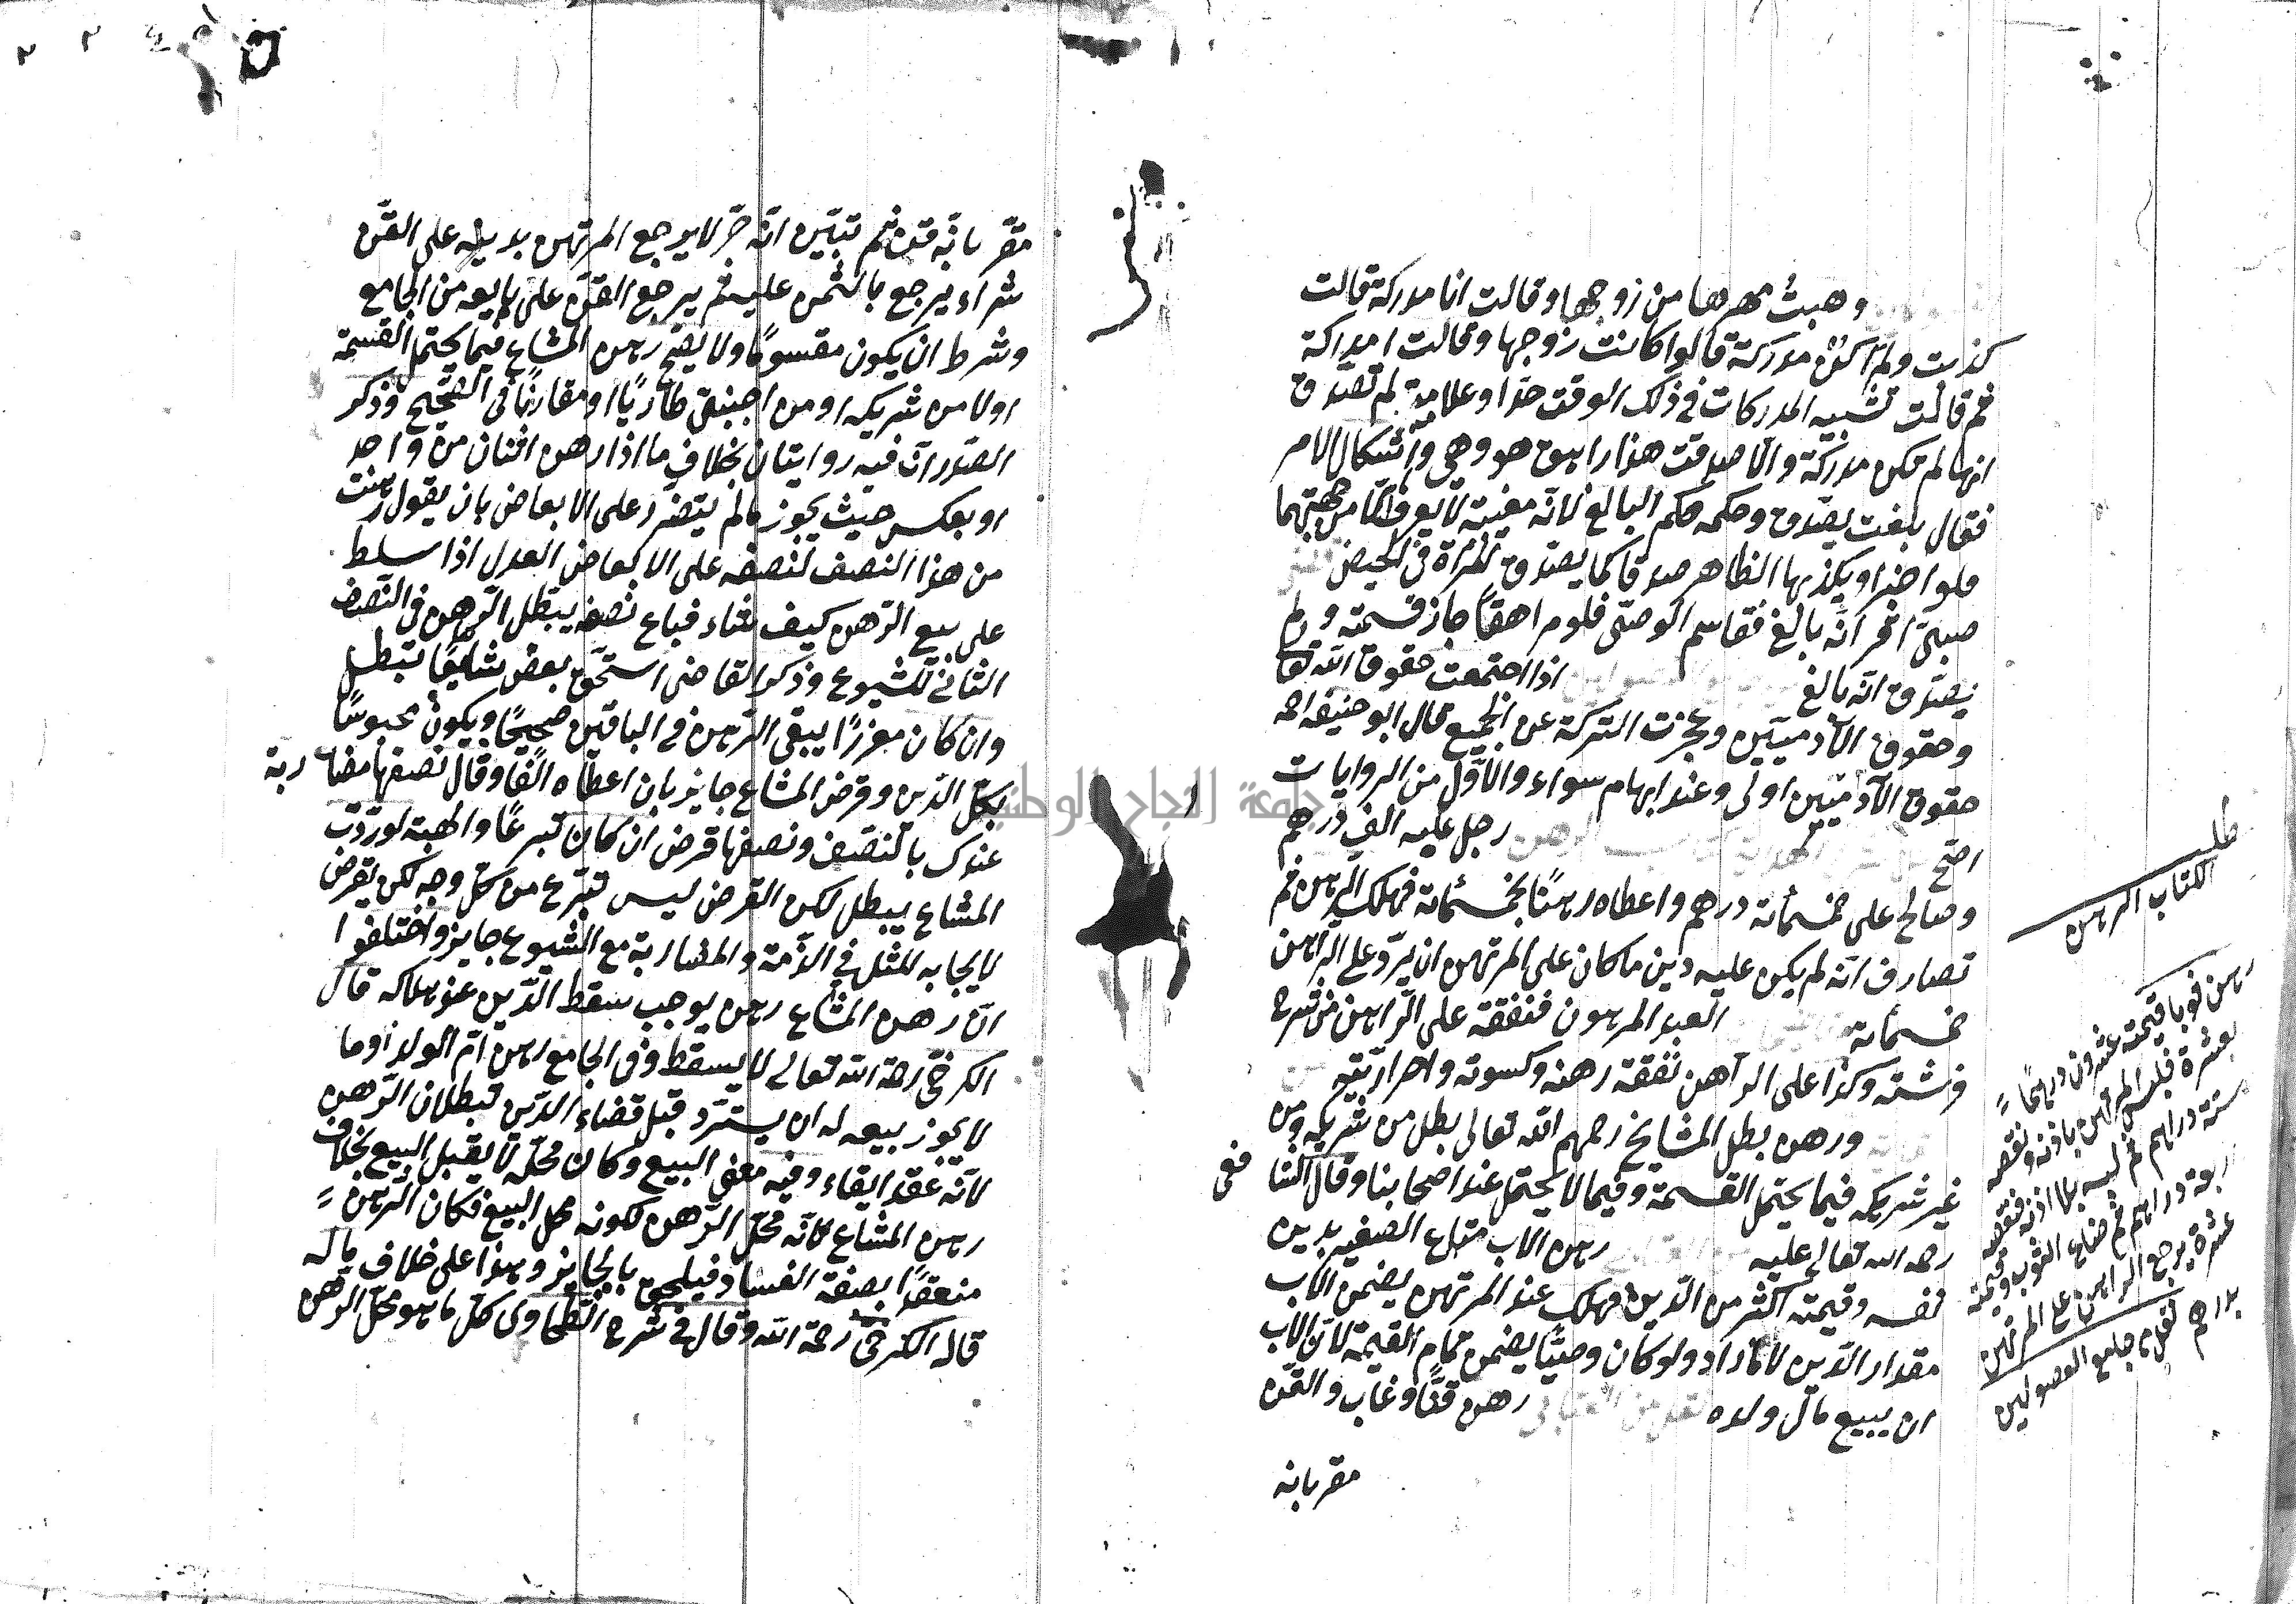 وهبت مهرها من زوجها وقالت انا مدركة قالت
كذبت ولم اكن مدركة قالوا كانت زوجها وقالت امدركة
ثم قالت تشبيه المدركات في ذلك الوقت حدا وعلامة لم تصدق
انها لم تكن مدركة والا صدقت هذا راهق هو وهي واشكال الامر
فقال بلغت يصدق وحكمه حكم البالغ لانه معنية لا يعرف الا من جهتهما
فلو اخبرا ويكذبها الظاهر صدقا كما يصدق المرأة في الحيض
صبي اقر انه بالغ فقاسم الوصي فلو مراهقا جاز قسمته ولم
يصدق انه بالغ اذا اجتمعت حقوق الله تعا
وحقوق الآدميين وعجزت التركة عن الجميع قال ابو حنيفه رحمه
حقوق الآدميين اولى وعند ابهام سواء والاول من الروايات
اصح رجل عليه الف درهم
وصالح على خمسمأئة درهم واعطاه رهنا بخمسمائة فهلك الرهن ثم
تصادف انه لم يكن عليه دين ما كان على المرتهن ان يرد على الراهن
خمسمائة العبد المرهون فنفقته على الراهن من شرح
فرشته وكذا على الراهن نفقة رهنه وكسوته واحرازيته
ورهن بطل المشايخ رحمهم الله تعالى بطل من شريكه ومن
غير شريكه فيما يحتمل القسمة وفيما لا يحتمل عند اصحابنا وقال الشا
فعى
رحمه الله تعالى عليه رهن الاب متاع الصغير بدين
نفسه وقيمته اكثر من الدين فهلك عند المرتهن يضمن الاب
مقدار الدين لا ما زاد ولو كان وصيا يضمن تمام القيمة لان الاب
ان يبيع مال ولده رهن قنا وغاب والقن
مقر بانه
الكتاب الرهن
رهن ثوبا قيمته عشرون درهما
بعشرة فلبس المرتهن باذنه ونقصه
ستة دراهم ثم لبسه بلا اذنه فنقصه
اربعة دراهم ثم ضاع الثوب وقيمته
عشرة يرجع الراهن على المرتهن
بدرهم نقل من جامع الفصولين
مقر بانه قن ثم تبين انه حر لا يرجع المرتهن بدينه على القن
شراء يرجع بالثمن عليه ثم يرجع القن على بايعه من الجامع
وشرط ان يكون مقسوما ولا يصح رهن المشاع فيما يحتمل القسمة
اولا من شريكه او من اجنبي طاريا او مقارنا في الصحيح وذكر
الصدر ان فيه روايتان بخلاف ما اذا رهن اثنان من واحد
او بعكس حيث يجوز مالم يتضرر على الابعاض بان يقول رهنت
من هذا النصف لنصفه على الابعاض العدل اذا سلط
على بيع الرهن كيف شاء فباع نصفه يبطل الرهن في النصف
الثاني للشيوع وذكر القاضى استحق بعض شايعا تبطل
وان كان مفرزا يبقى الرهن في الباقين صحيحا ويكون محبوسا
بكل الدين وقرض المشاع جايز بان اعطاه الفا وقال نصفها مضاربة
عندك بالنصف ونصفها قرض ان كان تبرعا والهبة لو ردت
المشاع يبطل لكن القرض ليس تبرع من كل وجه لكن يقرض
لايجابه للمثل في الذمة والمضاربة مع الشيوع جايز واختلفوا
ان رهن المشاع رهن يوجب سقط الدين عند هلاكه قال
الكرخي رحمة الله تعالى لا يسقط وفى الجامع رهن ام الولد اوما
لا يجوز بيعه له ان يسترد قبل قضاء الدين لبطلان الرهن
لانه عقد ايفاء وفيه معنى البيع وكان محله لا يقبل البيع بخلاف
رهن المشاع لانه محل الرهن لكونه محل البيع فكان الرهن
منعقدا بصفة الفساد فيلحق بالجايز وهذا على خلاف ما له
قاله الكرخي رحمة الله وقال في شرح الطحاوى كل ما هو محل الرهن
جامعة النجاح الوطنية